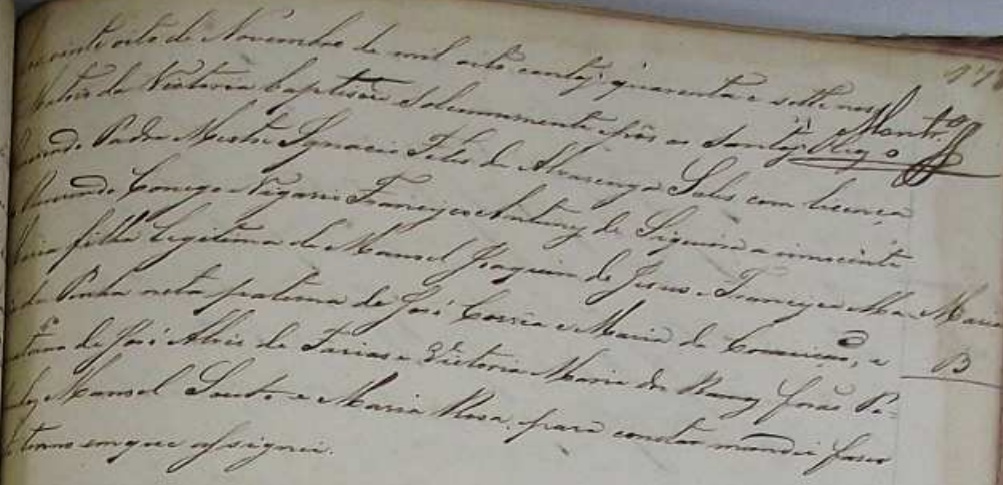 vinte oito de Novembro de mil oito centos quarenta e sette nesta
Matris da Victoria baptisou solemnemente e pôs os Santos
Padre Mestre Ignacio Felis de Alvarenga Salis com licença
Reverendo Conego Vigario Francisco Antunes de Siqueira a innocente
Maria filha legitima de Manoel Joaquim de Jesus e Francisca Maria
da Penha neta paterna de José Corrêa e Maria da Conceição, e
materna de José Alvis de Farias e Victoria Maria dos Ramos forão Pa-
Manoel Couto e Maria Rosa, para constar mandei faser
termo em que assignei.
B